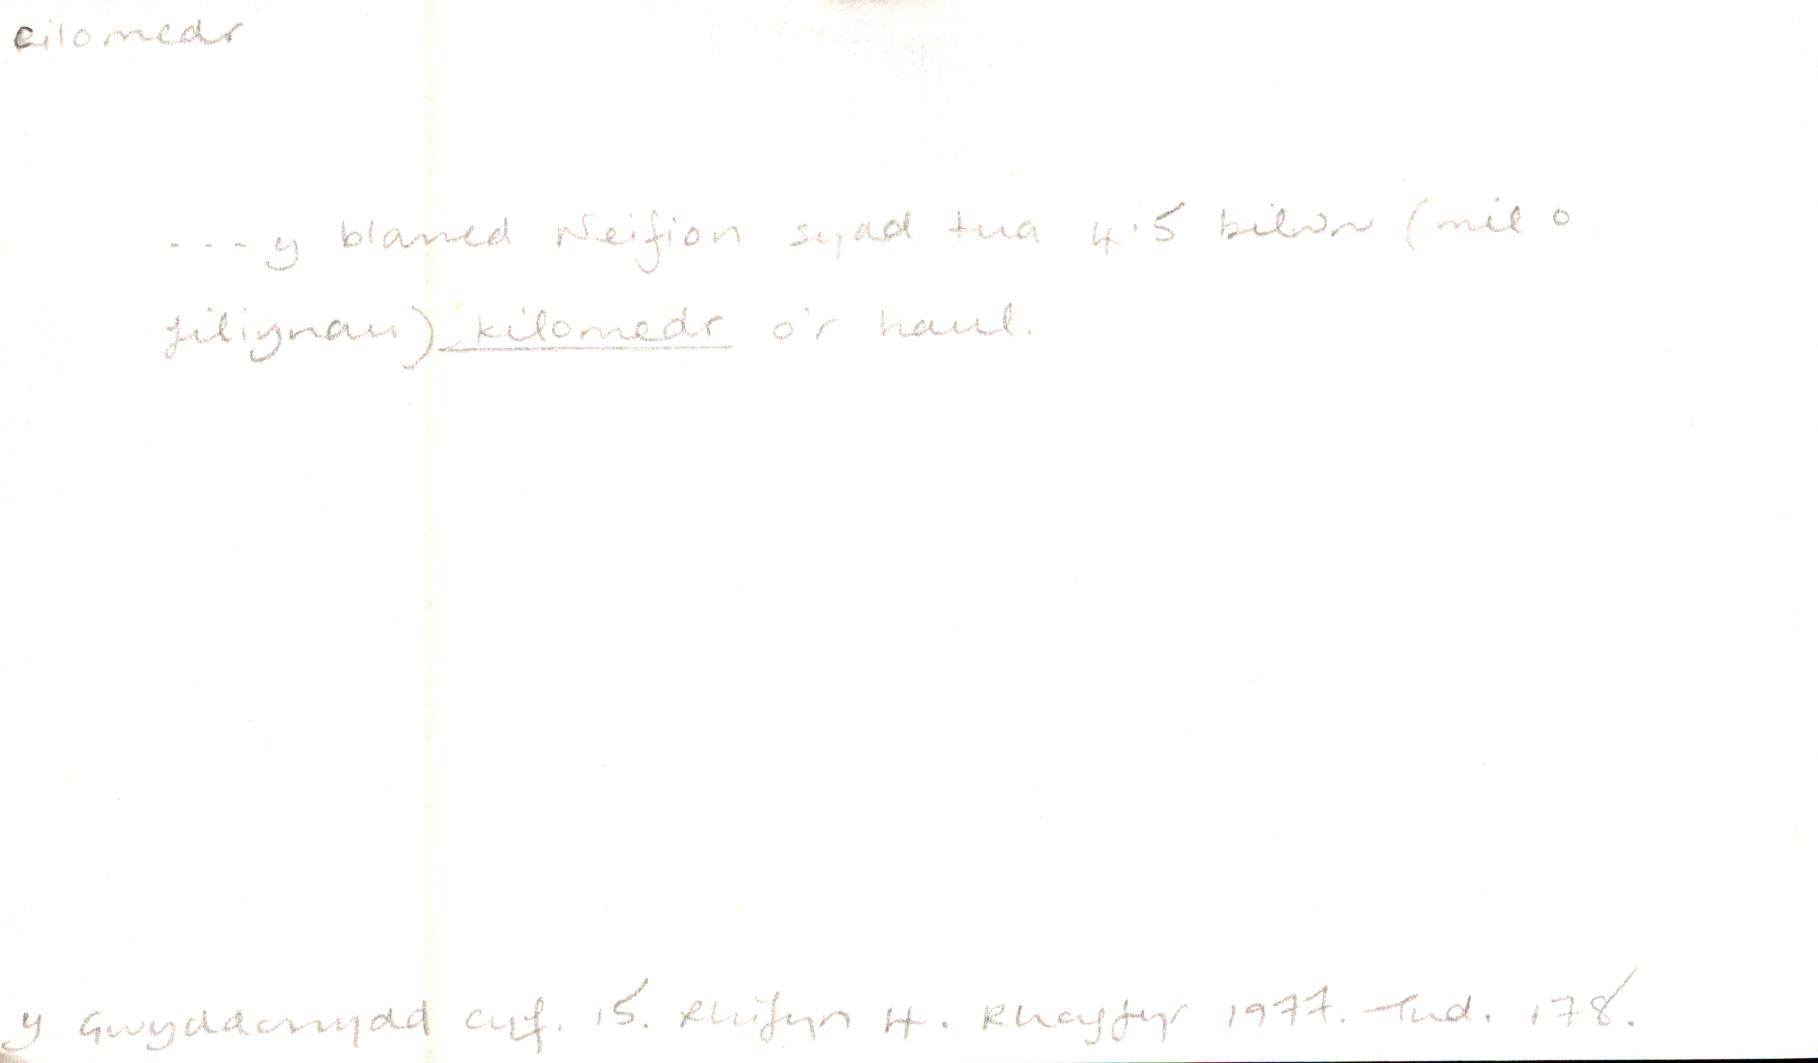 cilomedr
---y blaned Neifion sydd tua 4.5 biliwn (mil o
filiynau) kilomedr o'r haul.
y Gwyddonydd cyf. 15. Rhifyn 4. Rhagfyr 1977. Tud. 178.